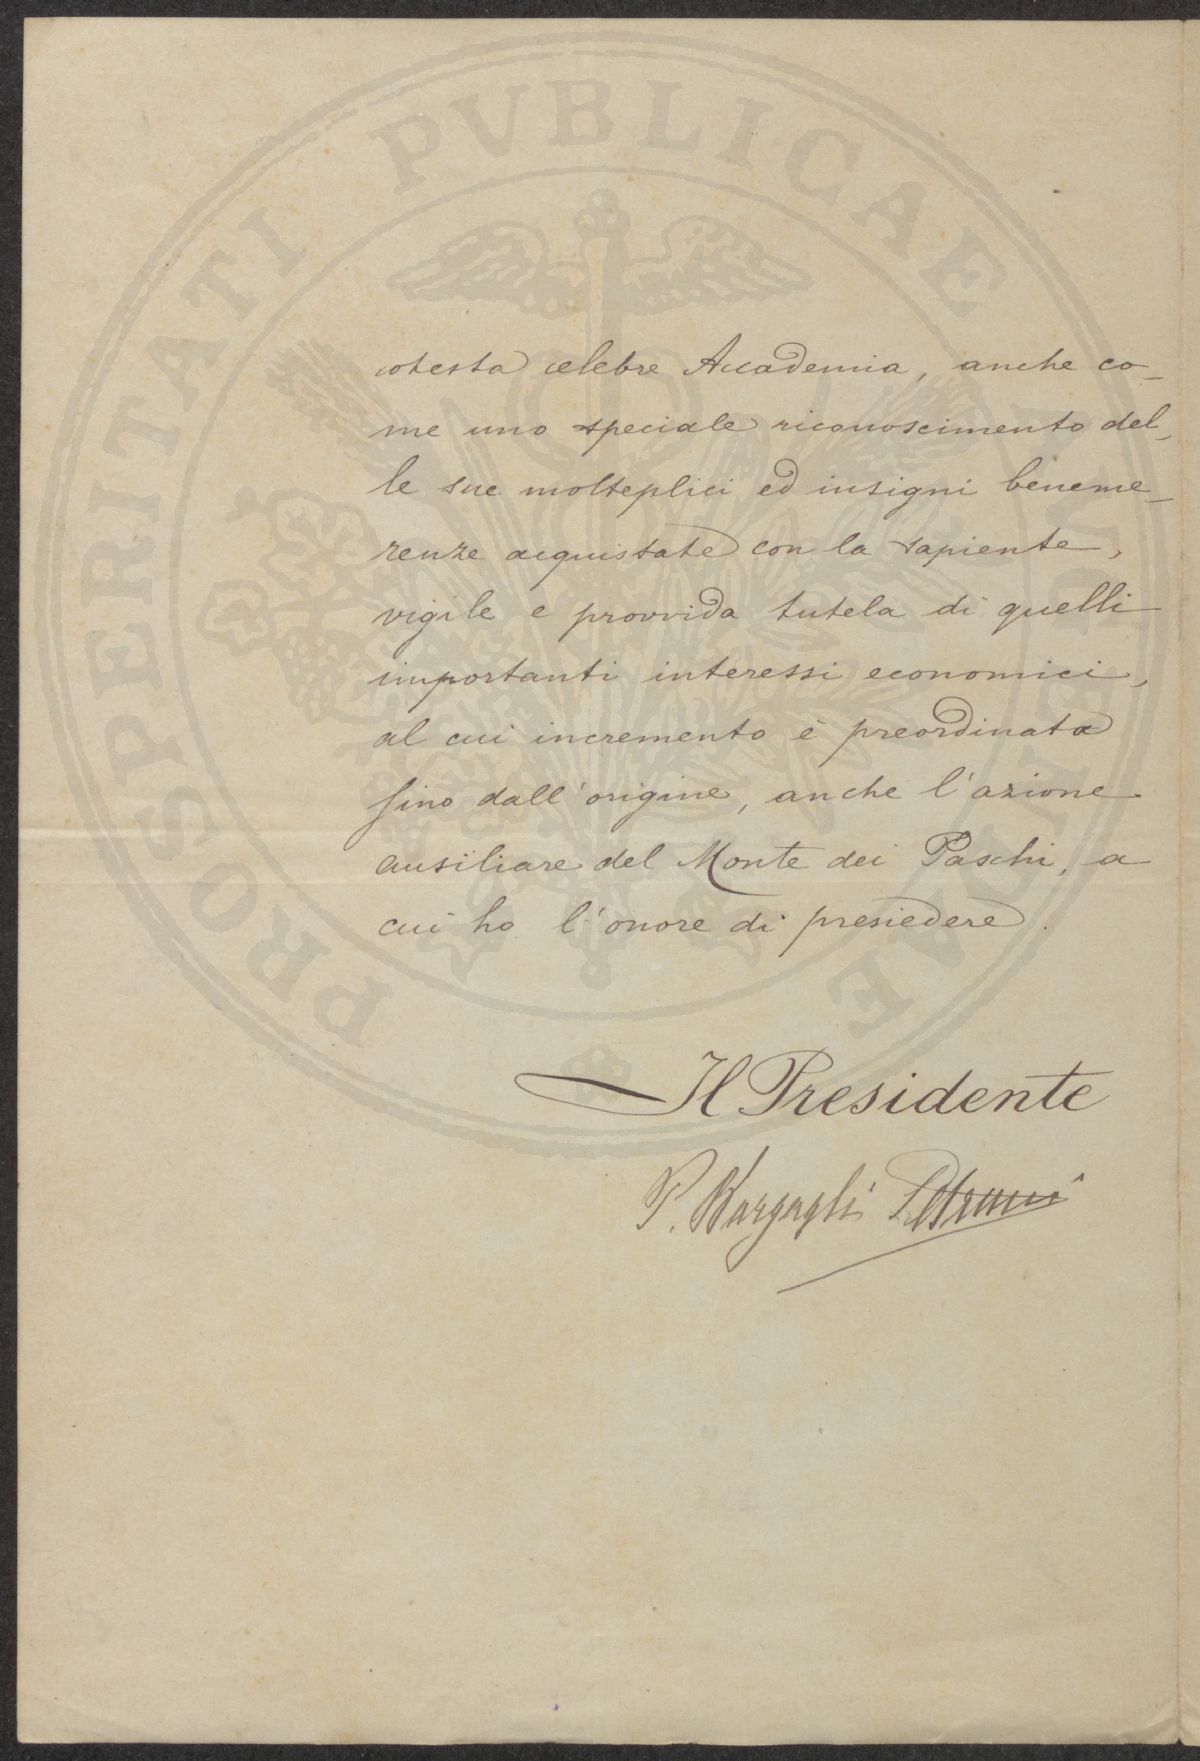 PROSPERITATI PVBLICAE
cotesta celebre Accademia, anche co-
me uno speciale riconoscimento del-
le sue molteplici ed insigni beneme-
renze acquistate con la sapiente,
vigile e provvida tutela di quelli
importanti interessi economici,
al cui incremento è preordinata
fino dall'origine, anche l'azione
ausiliare del Monte dei Paschi, a
cui ho l'onore di presiedere.
Il Presidente
P. Bargagli Petrucci